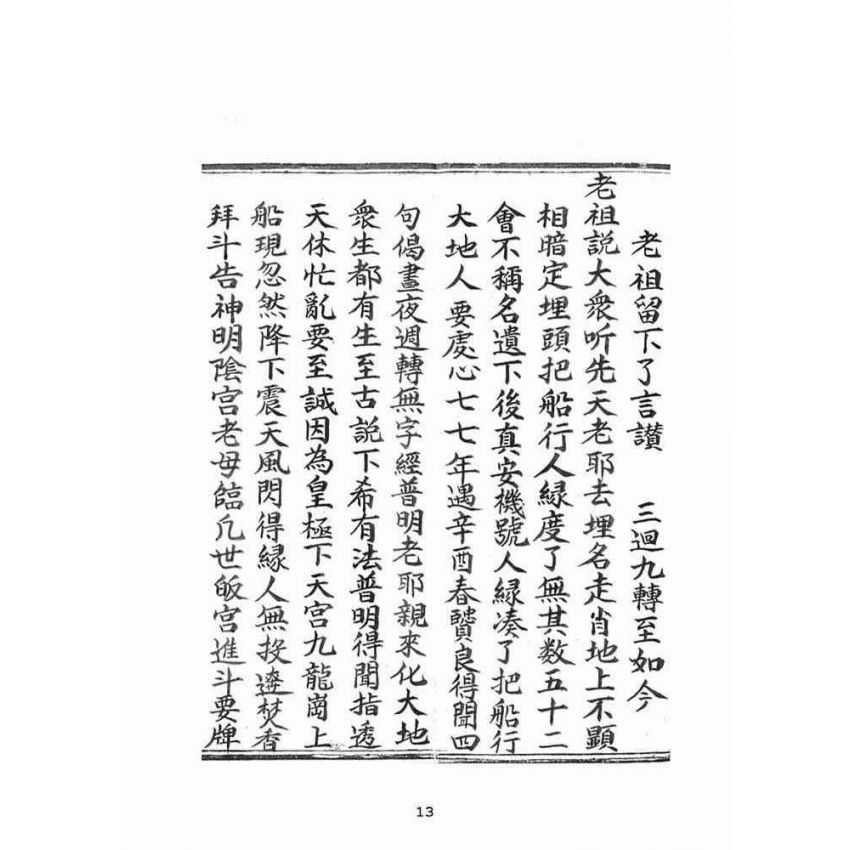 老祖留下了言讃 三迴九轉至如今
老祖説大衆听先天老耶去埋名走肖地上不顯
相暗定埋頭把船行人緑度了無其数五十二
會不稱名遺下後真安機號人緑凑了把船行
大地人要處心七七年遇辛酉春贒良得聞四
句偈晝夜週轉無字經普明老耶親來化大地
衆生都有生至古説下希有法普明得聞指透
天休忙亂要至誠因為皇極下天宫九龍崗上
船現忽然降下震天風閃得緑人無投逩焚香
拜斗告神明陰宫老母臨凢世皈宫進斗要牌
13